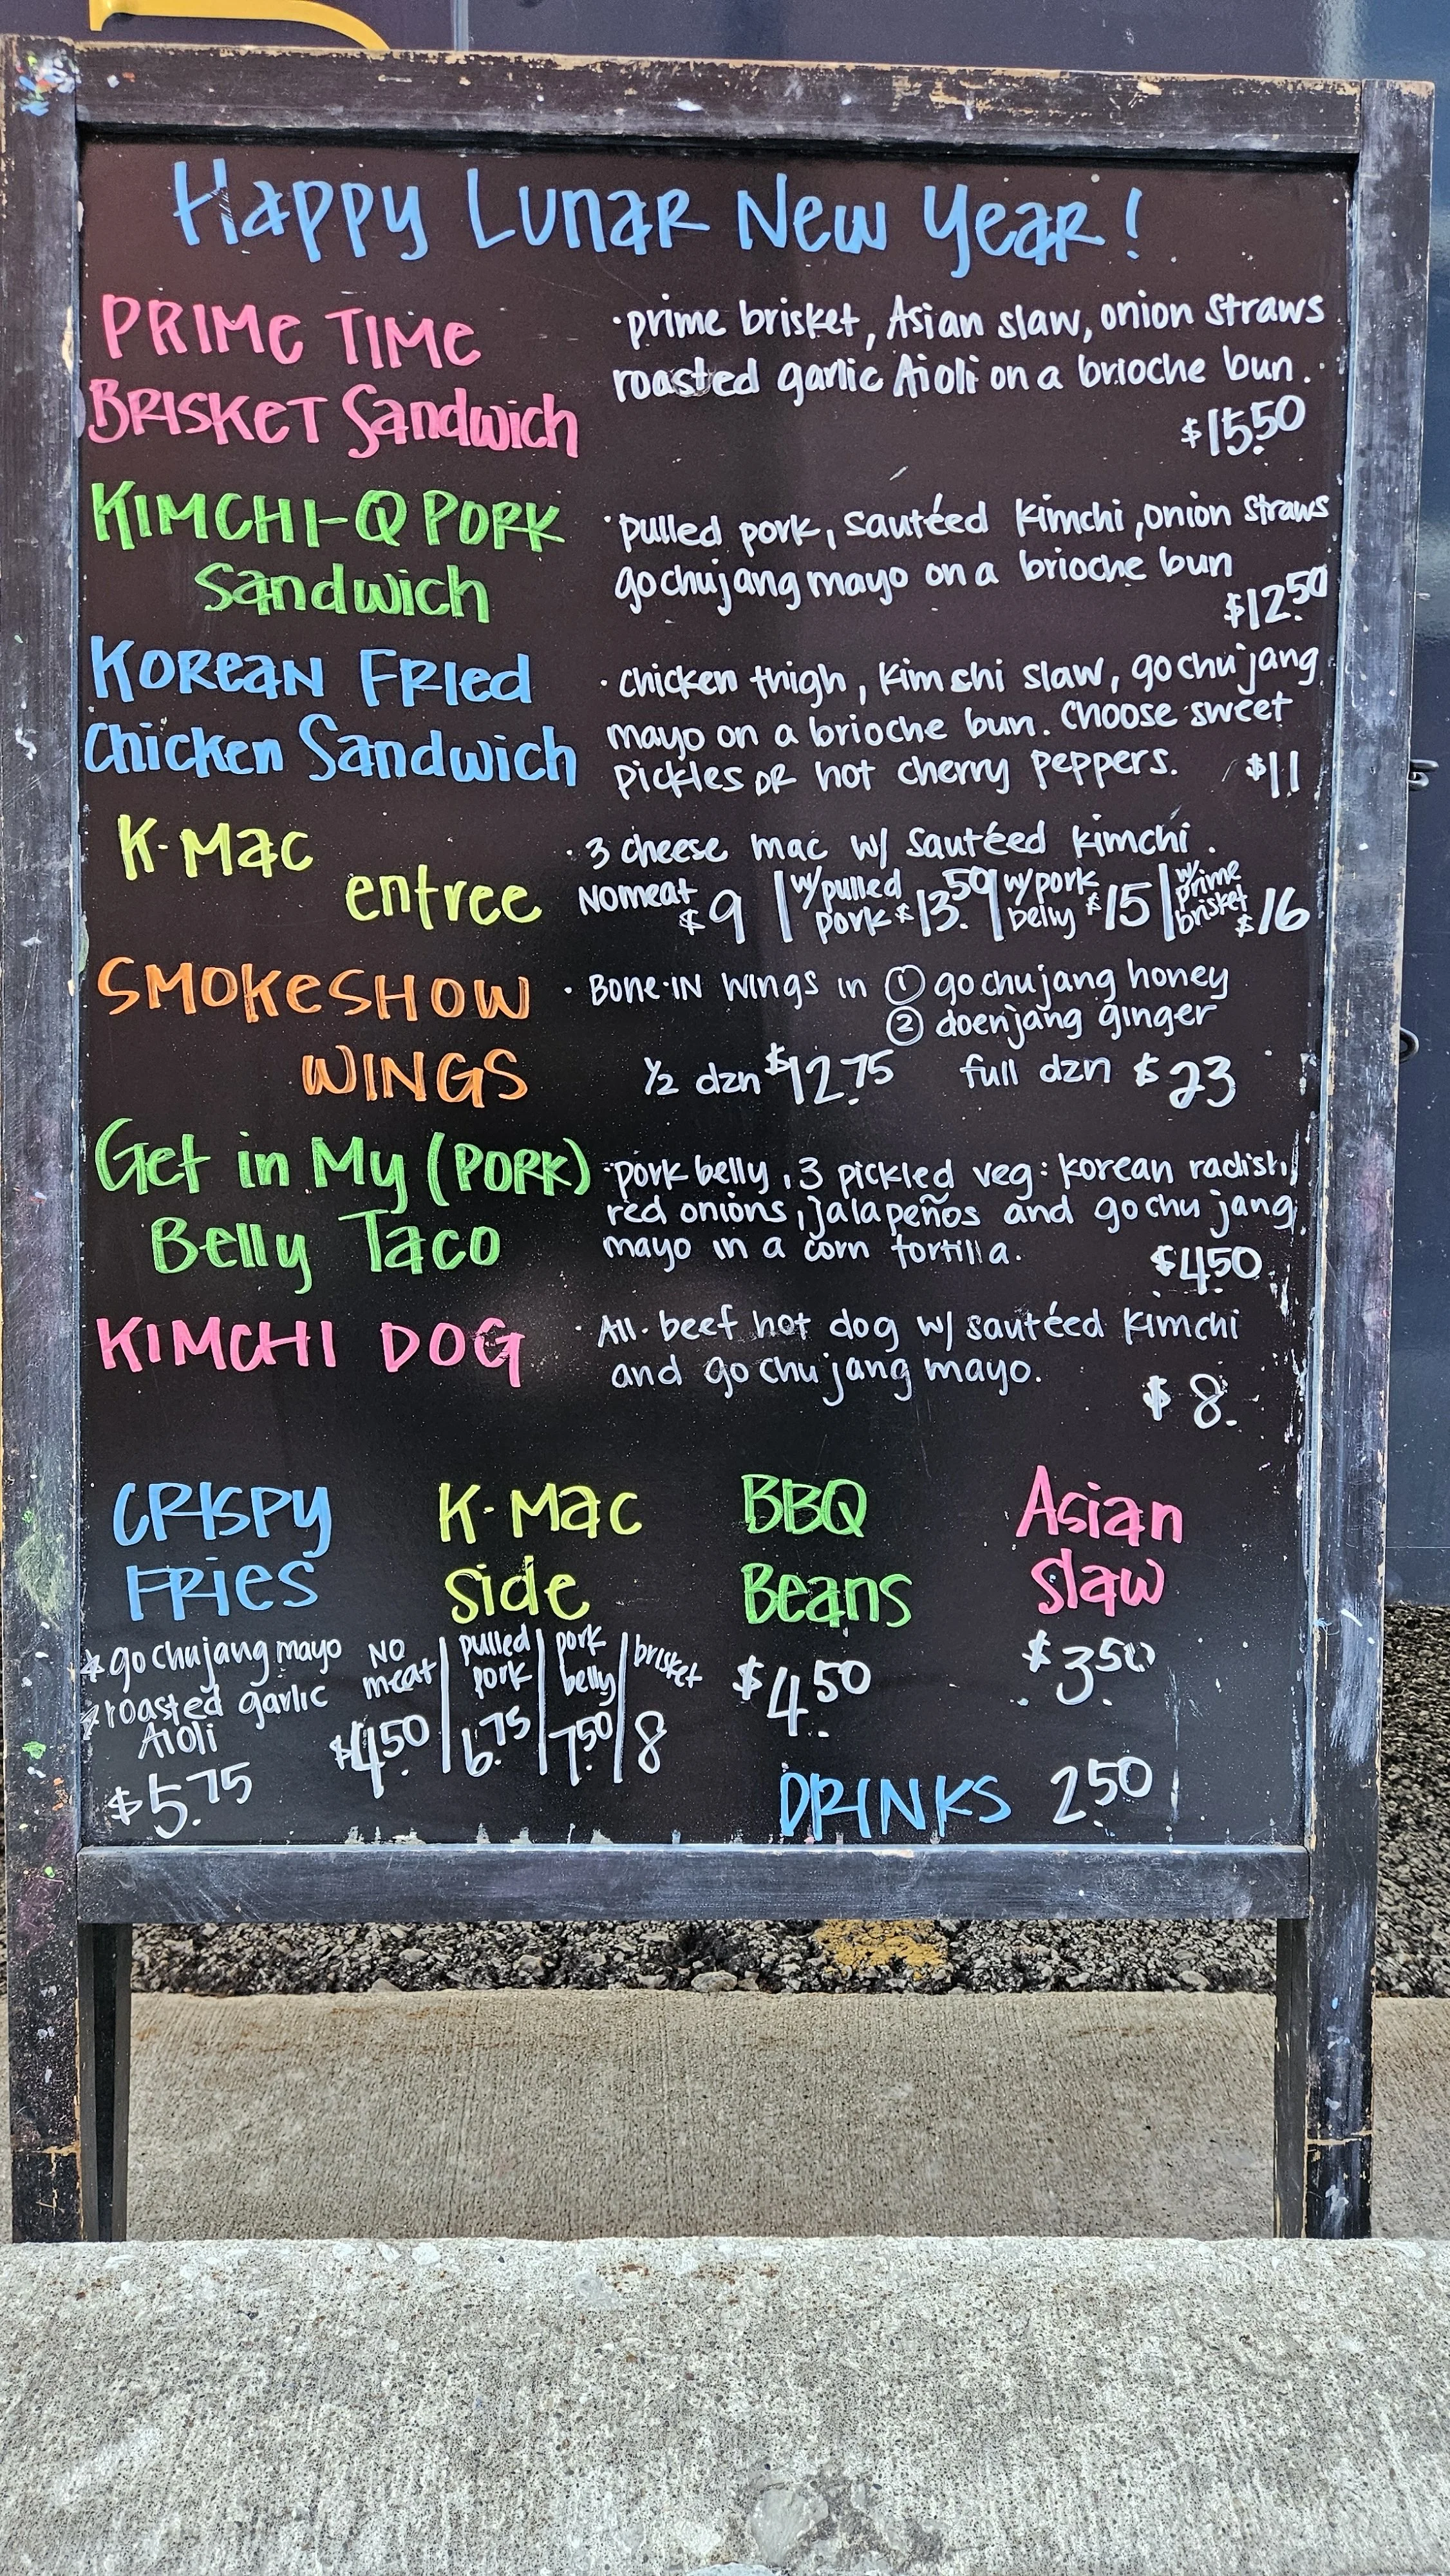 Happy Lunar New Year!
PRIME TIME
BRISKET Sandwich
·prime brisket, Asian slaw, onion straws
roasted garlic Aioli on a brioche bun.
$15.50
KIMCHI-Q PORK
Sandwich
·pulled pork, sautéed kimchi, onion straws
gochujang mayo on a brioche bun
$12.50
KOREAN FRIED
Chicken Sandwich
·chicken thigh, kimchi slaw, gochujang
mayo on a brioche bun. Choose sweet
pickles OR hot cherry peppers. $11
K-Mac
entree
·3 cheese mac w/ sautéed kimchi.
No meat $9 | w/ pulled pork $13.50 | w/ pork belly $15 | w/ prime brisket $16
SMOKESHOW
WINGS
·BONE-IN WINGS in ① gochujang honey
② doenjang ginger
1/2 dzn $12.75 full dzn $23
Get in My (PORK)
Belly Taco
·pork belly, 3 pickled veg: korean radish,
red onions, jalapeños and gochujang
mayo in a corn tortilla.
$4.50
KIMCHI DOG
·All-beef hot dog w/ sautéed kimchi
and gochujang mayo.
$8.
CRISPY
FRIES
*gochujang mayo
*roasted garlic
Aioli
$5.75
K-Mac
side
No meat $4.50 | pulled pork 6.75 | pork belly 7.50 | brisket 8
BBQ
Beans
$4.50
Asian
slaw
$3.50
DRINKS 2.50